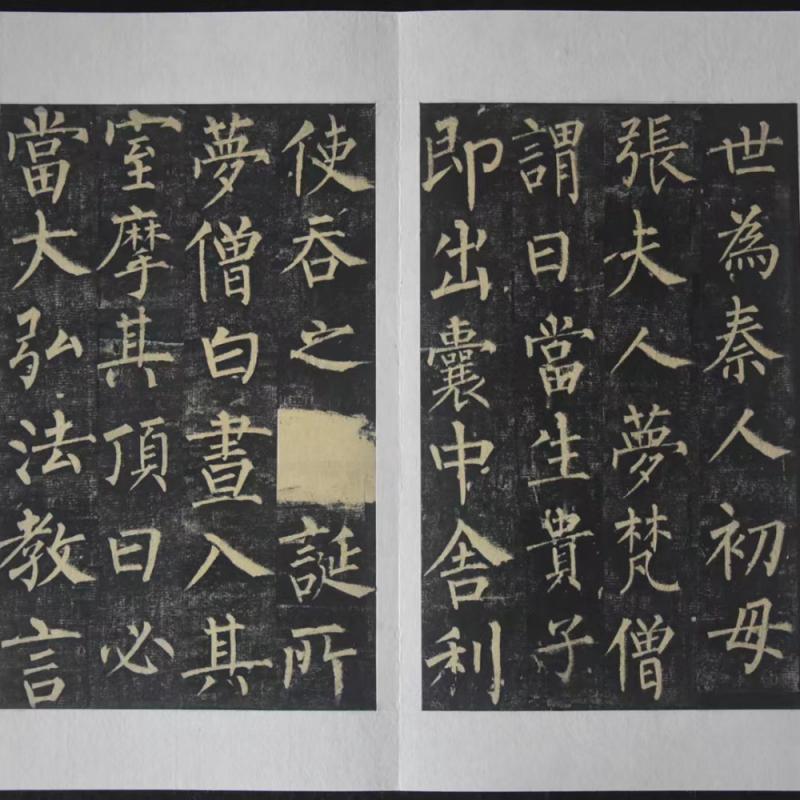 世為秦人初毋
張夫人夢梵僧
謂曰當生貴子
即出囊中舍利
使吞之誕所
夢僧白晝入其
室摩其頂曰必
當大弘法教言